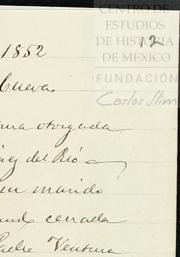 CENTRO DE
ESTUDIOS
DE HISTORIA
DE MÉXICO
FUNDACIÓN
Carlos Slim
12
1852
Cueva.
otorgada
del Río
marido
cerrada
Padre Ventura